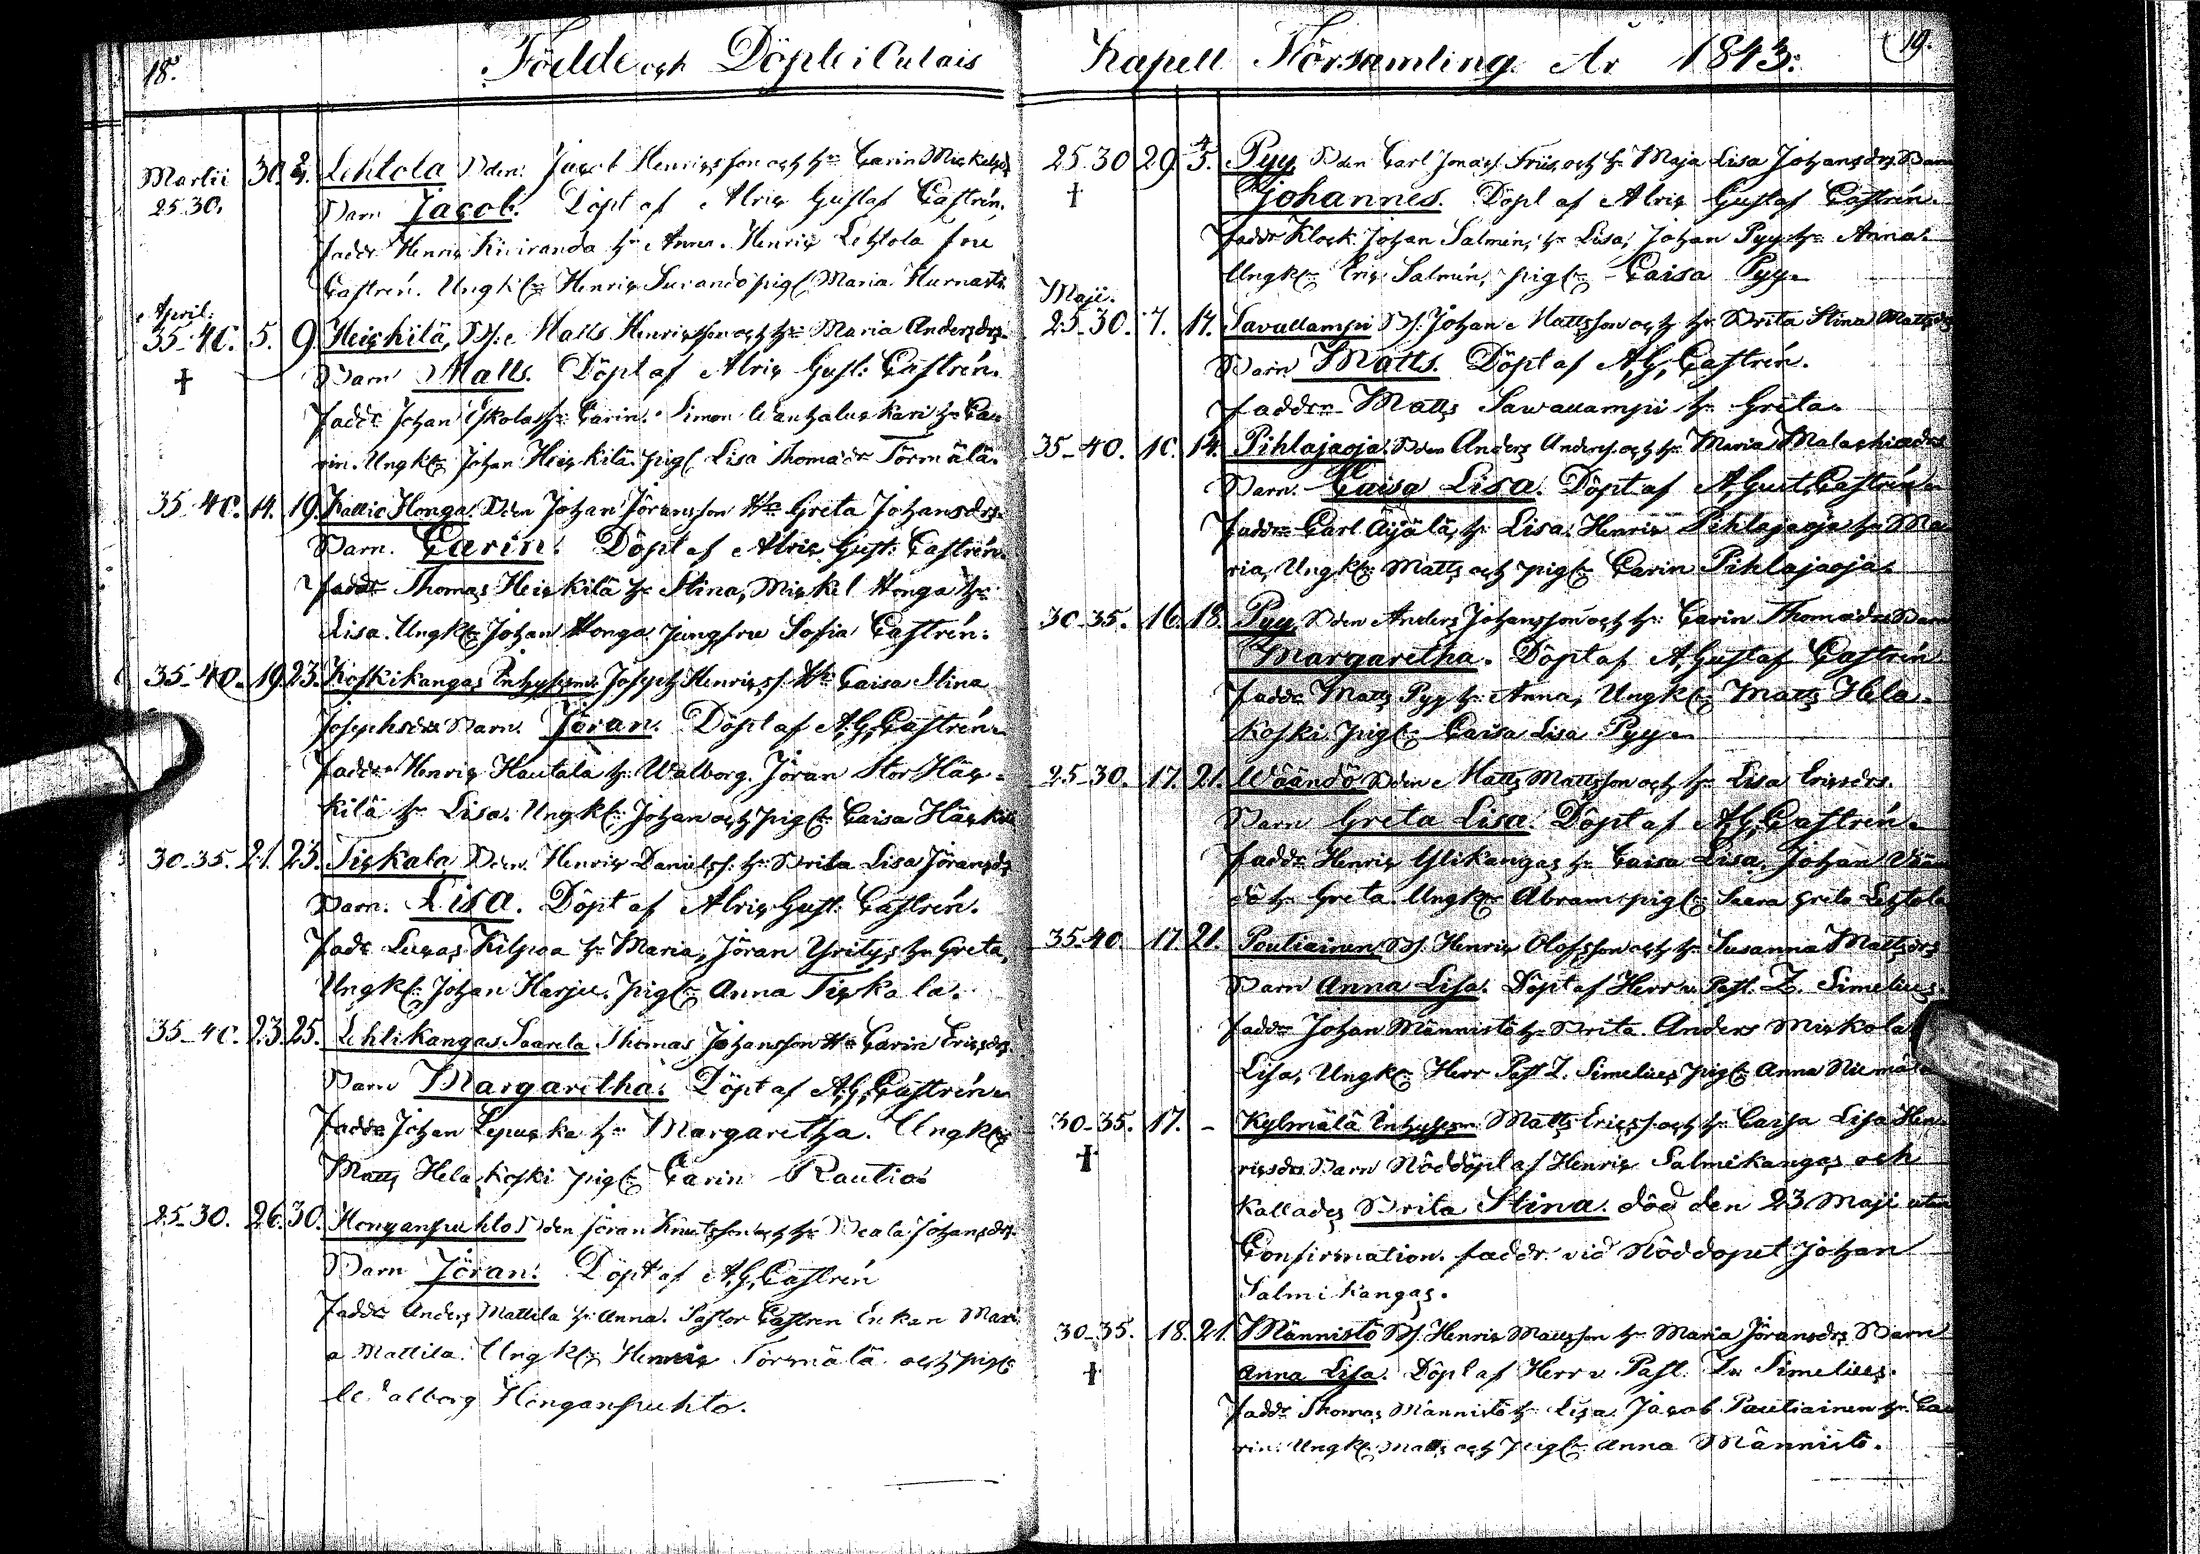 18.
Födde och Döpte i Pulais
Martii 30. 2/4. Lehtola Bden: Jacob Henricsson och h: Carin Mickelsdr
25.30. Barn Jacob. Döpt af Alric Gustaf Castrén.
Faddr Henric Kiviranda h: Anna. Henric Lehtola fru
Castrén. Ungkn: Henric Surando pign: Maria Hurnasti
April:
35-40. 5. 9. Heickilä, Bf: Matts Henricsson och h: Maria Andersdr.
† Barn Matts. Döpt af Alric Gust: Castrén.
Faddr Johan Yskola h: Carin. Simon Wanhaluskari h: Ca-
rin. Ungkn: Johan Heickilä. pign: Lisa Thomædr Törmälä.
35-40. 14. 19. Kallio Honga. Bden Johan Jöransson H: Greta Johansdr.
Barn. Carin. Döpt af Alric Gust: Castrén.
Faddr Thomas Heickilä h: Stina, Mickel Honga h:
Lisa. Ungkn: Johan Honga. jungfru Sofia Castrén.
35-40. 19. 23. Koskikangas Inhysesm: Joseph Henricss. H: Caisa Stina
Josephsdr Barn. Jöran. Döpt af A,G, Castrén.
Faddr Henric Hautala h: Walborg. Jöran StorHäc-
kilä h: Lisa. Ungkn: Johan och pign: Caisa Häckilä
30-35. 21. 23. Tickala Bden. Henric Danielss: h: Brita Lisa Jöransdr
Barn. Lisa. Döpt af Alric Gust: Castrén.
Fadr Lucas Kilpoa h: Maria, Jöran Yritys h: Greta,
Ungkn: Johan Harju. pign: Anna Tickala.
35-40. 23. 25. Lehtikangas Saarela Thomas Johansson H: Carin Ericsdr.
Barn Margaretha. Döpt af A,G, Castrén.
Faddr Johan Lepuska h: Margaretha. Ungkn:
Matts Helakoski pign: Carin Rautio.
25-30. 26. 30. Honganpuhto Bden Jöran Knutsson och h: Beata Johansdr.
Barn Jöran. Döpt af A,G, Castrén
Faddr Anders Mattila h: Anna. Pastor Castren Enkan Mari
a Mattila. Ungkn: Henric Törmälä och pign:
Walborg Honganpuhto.
Kapell Församling År 1843. 19.
25-30 29. 4/5. Pyy, Bden Carl Jonass: Friis, och h: Maja Lisa Johansdr. Barn
† Johannes. Döpt af Alric Gustaf Castrén.
Faddr Klock. Johan Salmén, h: Lisa, Johan Pyy h: Anna.
Ungkn: Eric Salmén, pign: Caisa Pyy.
Maji.
25-30. 7. 14. Savallampi Bf. Johan Mattsson och h: Brita Stina Mattsdr
Barn Matts. Döpt af A,G, Castrén.
Faddr Matts Sawallampi h: Greta.
35-40. 10. 14. Pihlajaoja. Bden Anders Anderss: och h: Maria Malachiædr
Barn. Caisa Lisa. Döpt af A, Gust, Castrén.
Faddr Carl Äijälä, h: Lisa. Henric Pihlajaoja h: Ma
ria, Ungkn: Matts och pign: Carin Pihlajaoja.
30-35. 16. 18. Pyy, Bden Anders Johansson och h: Carin Thomædr Barn
Margaretha. Döpt af A, Gustaf Castrén
Faddr Matts Pyy h: Anna, Ungkn: Matts Hela-
koski, pign: Caisa Lisa Pyy.
25-30. 17. 21. Wäändö Bden Matts Mattsson och h: Lisa Ericsdr.
Barn Greta Lisa. Döpt af A,G, Castrén.
Faddr Henric Ylikangas h: Caisa Lisa. Johan Wään
dö h: Greta. Ungkn: Abram pign: Saara Greta Lehtola
35-40. 17. 21. Poutiainen Bf. Henric Olofsson och h: Susanna Mattsdr
Barn Anna Lisa. Döpt af Herr v. Past. Z. Simelius.
Faddr Johan Männistö h: Brita. Anders Mickola
Lisa, Ungkn: Herr Past Z. Simelius, pign: Anna Niemälä
30-35. 17. - Kylmälä Inhysesm: Matts Ericss: och h: Caisa Lisa Hen-
† ricsdr. Barn Nöddöpt af Henric Salmikangas och
kallades Brita Stina. död den 23 Maji utan
Confirmation. faddr. vid Nöddopet Johan
Salmikangas.
30-35. 18. 21. Männistö Bf. Henric Mattsson h: Maria Jöransdr. Barn
† Anna Lisa. Döpt af Herr v. Past. Z. Simelius.
Faddr Thomas Männistö h: Lisa. Jacob Pautiainen h: Ca
rin. Ungkn: Matts och pign: Anna Männistö.